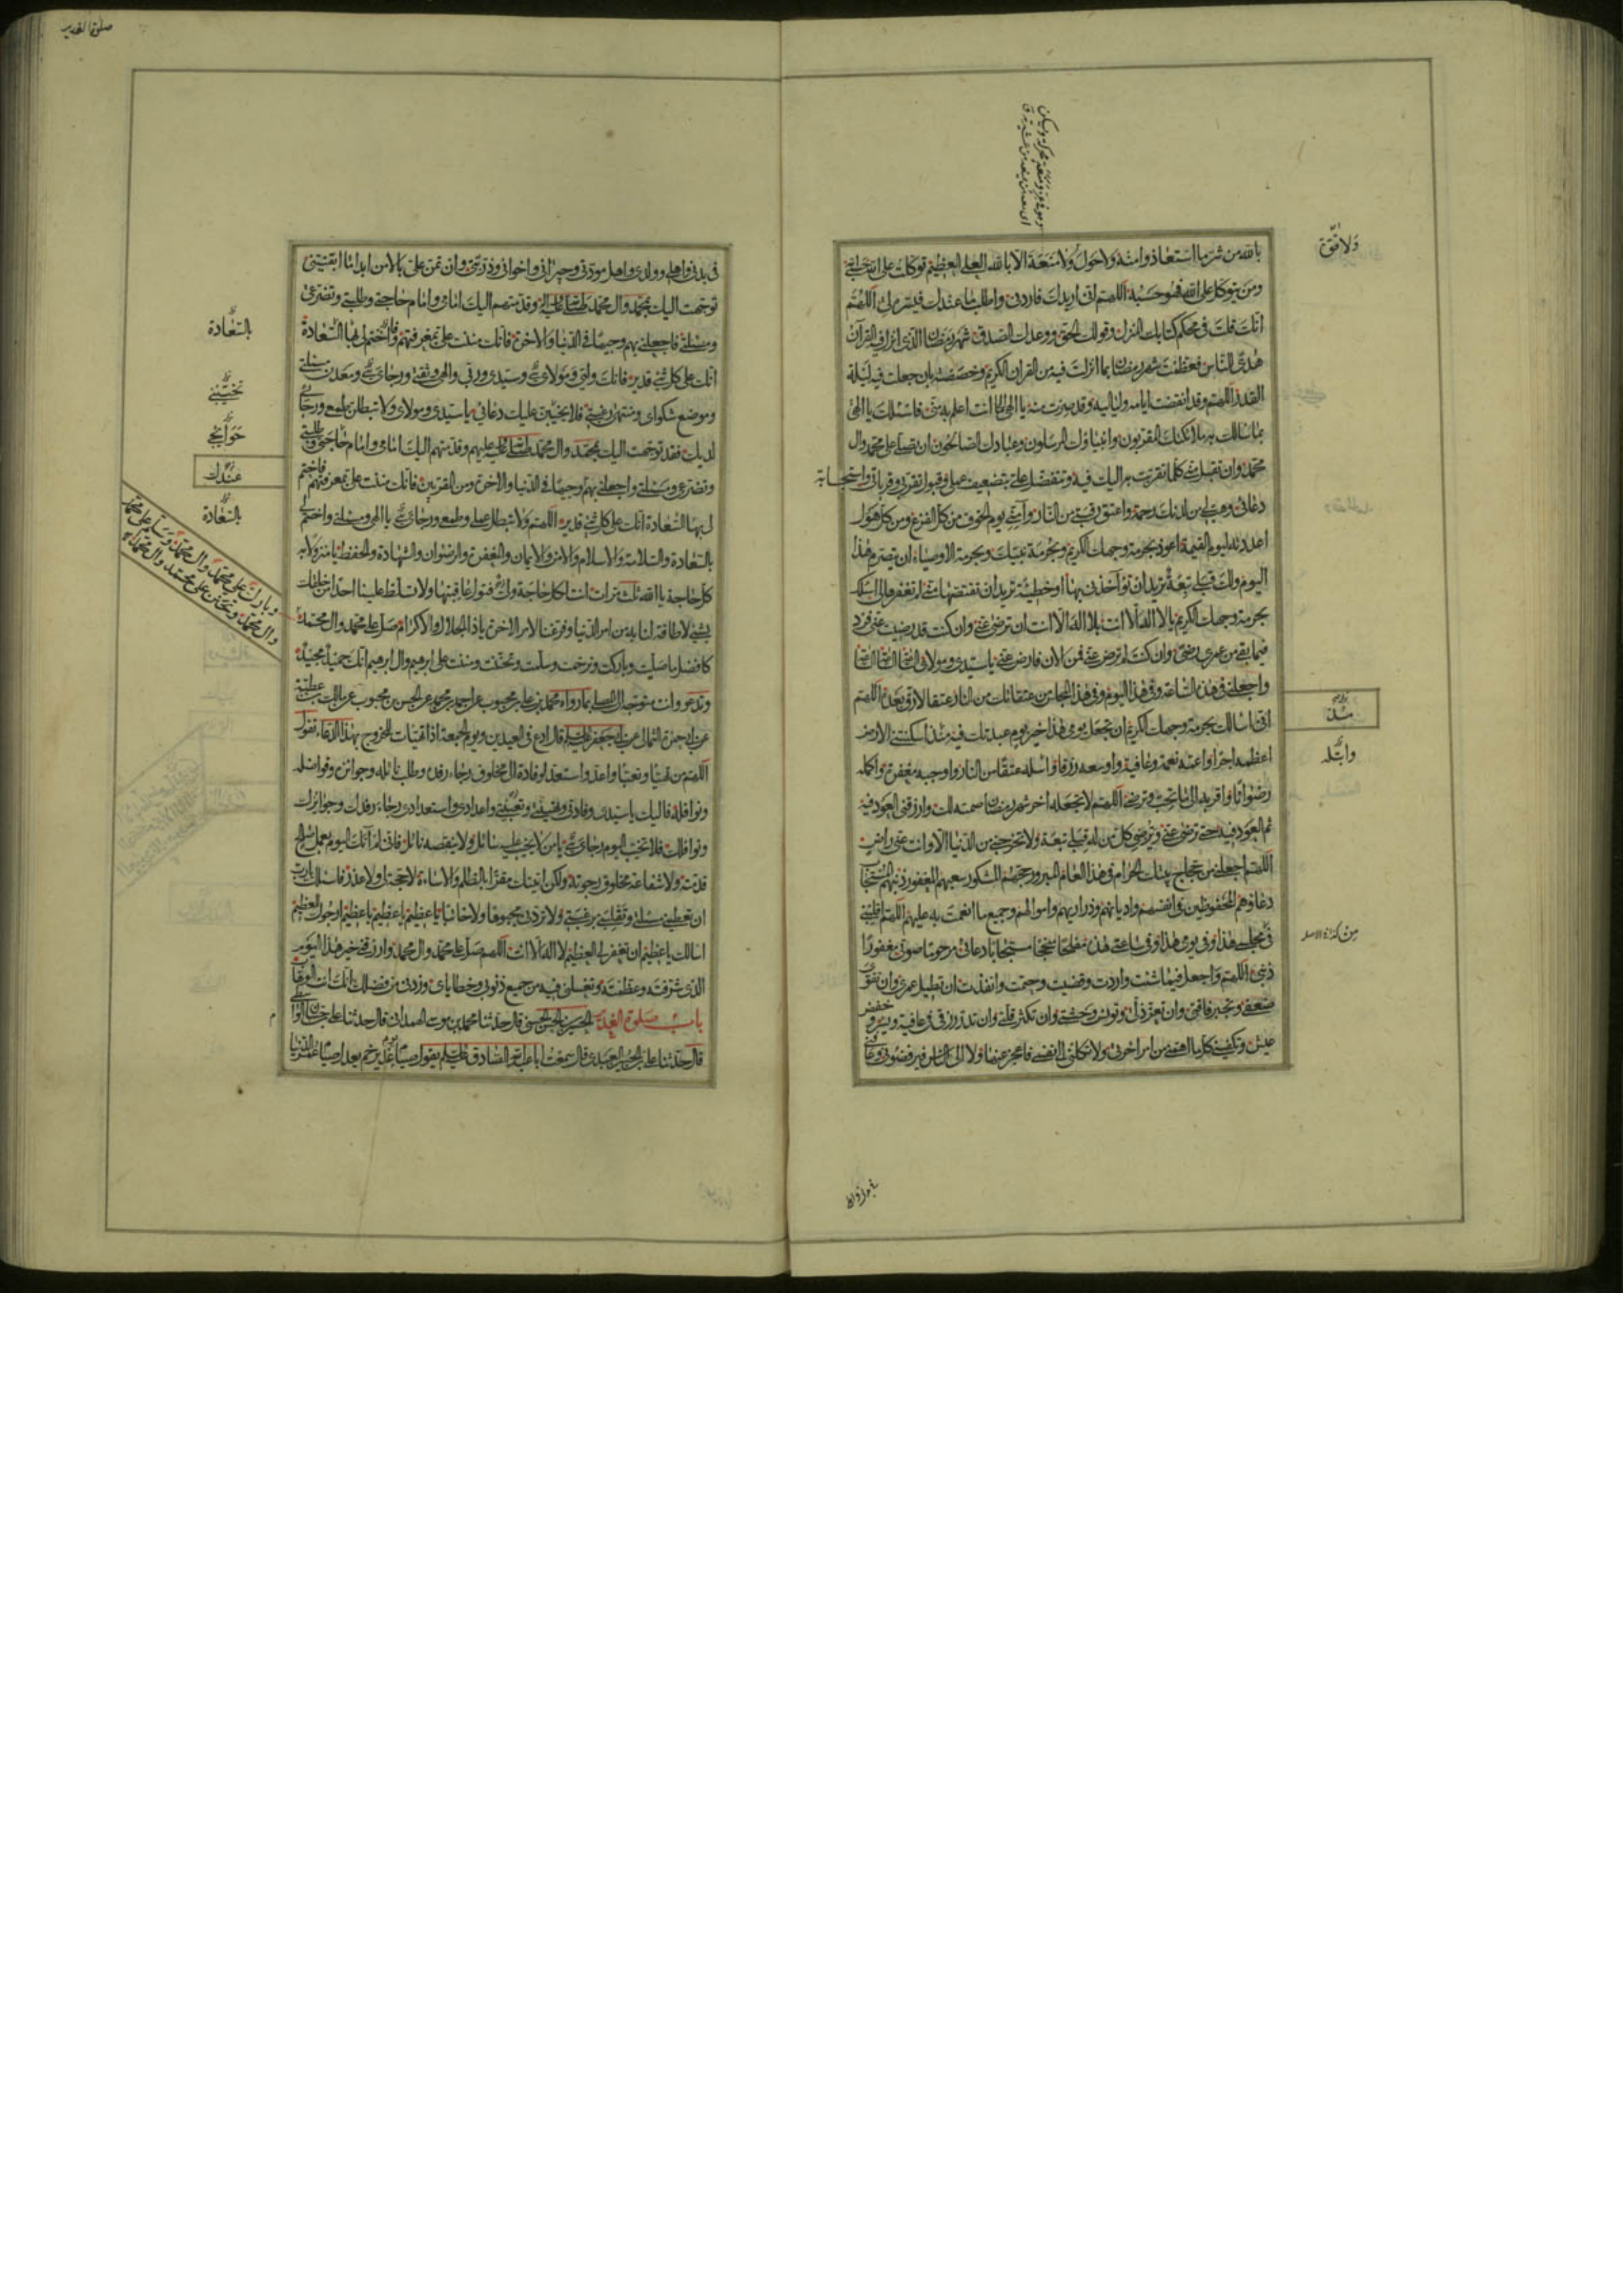 ولا قوة
بالله من شر ما استعاذوا منه ولا حول ولا منعة الا بالله العلي العظيم توكلت على الله
ومن يتوكل على الله فهو حسبه اللهم اني اريدك فاردني واطلب ما عندك فيسره لي اللهم
انك قلت في محكم كتابك المنزل وقولك الحق ووعدك الصدق شهر رمضان الذي انزل فيه القرآن
هدى للناس فعظمت شهر رمضان بما انزلت فيه من القران الكريم وخصصته بان جعلت فيه ليلة
القدر اللهم وقد انقضت ايامه ولياليه وقد صرت منه يا الهي الى ما انت اعلم به مني فاسئلك يا الهي
بما سالك به ملائكتك المقربون وانبياؤك المرسلون وعبادك الصالحون ان تصلي على محمد وال
محمد وان تقبل مني كلما تقربت به اليك فيه وتتفضل علي بتضعيف عملي وقبول تقربي وقرباتي واستجابة
دعائي وهب لي من لدنك رحمة واعتق رقبتي من النار وآمني يوم الخوف من كل الفزع ومن كل هول
اعددته ليوم القيمة اعوذ بحرمة وجهك الكريم وبحرمة نبيك وبحرمة الاوصياء ان يتصرم هذا
اليوم ولك قبلي تبعة تريد ان تؤاخذني بها او خطيئة تريد ان تقتصها مني لم تغفرها لي اسئلك
بحرمة وجهك الكريم يا لا اله الا انت بلا اله الا انت ان ترضى عني وان كنت قد رضيت عني فزد
فيما بقي من عمري رضى وان كنت لم ترض عني فمن الان فارض عني يا سيدي ومولاي الساعة الساعة الساعة
واجعلني في هذه الساعة وفي هذا اليوم وفي هذا المجلس من عتقائك من النار عتقا لا رق بعده اللهم
اني اسالك بحرمة وجهك الكريم ان تجعل يومي هذا خير يوم عبدتك فيه منذ اسكنتني الارض
اعظمه اجرا واعمه نعمة وعافية واوسعه رزقا وابتله عتقا من النار واوجبه مغفرة واكمله
رضوانا واقربه الى ما تحب وترضى اللهم لا تجعله اخر شهر رمضان صمته لك وارزقني العود فيه
ثم العود فيه حتى ترضى عني وترضي كل من له قبلي تبعة ولا تخرجني من الدنيا الا وانت عني راض
اللهم اجعلني من حجاج بيتك الحرام في هذا العام المبرور حجهم المشكور سعيهم المغفور ذنبهم المستجاب
دعاؤهم المحفوظين في انفسهم واديانهم وذراريهم واموالهم وجميع ما انعمت به عليهم اللهم اقلبني
في مجلسي هذا وفي يومي هذا وفي ساعتي هذه مفلحا منجحا مستجابا دعائي مرحوما صوتي مغفورا
ذنبي اللهم واجعل فيما شئت واردت وقضيت وحتمت وانفذت ان تطيل عمري وان تقوي
ضعفي وتجبر فاقتي وان تعز ذلي وتونس وحشتي وان تكثر قلتي وان تدر رزقي في عافية ويسر وخفض
عيش وتكفيني كل ما اهمني من امر اخرتي ولا تكلني الى نفسي فاعجز عنها ولا الى الناس فيرفضوني وعافني
منذ
وابتله
من
صلوة الغدير
في بدني واهلي وولدي واهل مودتي وجيراني واخواني وذريتي وان تمن علي بالامن ابدا ما ابقيتني
توجهت اليك بمحمد وال محمد صلى الله عليه واله وقدمتهم اليك امامي وامام حاجتي وطلبتي وتضرعي
ومسئلتي فاجعلني بهم وجيها في الدنيا والاخرة فانك مننت علي بمعرفتهم فاختم لي بها السعادة
انك على كل شئ قدير فانك وليي ومولاي وسيدي وربي والهي وثقتي ورجائي ومعدن مسئلتي
وموضع شكواي ومنتهى رغبتي فلا يخيبن عليك دعائي يا سيدي ومولاي ولا تبطلن طمعي ورجائي
لديك فقد توجهت اليك بمحمد وال محمد صلى الله عليه وعليهم وقدمتهم اليك امامي وامام حاجتي وطلبتي
وتضرعي ومسئلتي واجعلني بهم وجيها في الدنيا والاخرة ومن المقربين فانك مننت علي بمعرفتهم فاختم
لي بها السعادة انك على كل شئ قدير اللهم ولا تبطل عملي وطمعي ورجائي يا الهي ومسئلتي واختم لي
بالسعادة والسلامة والاسلام والامن والايمان والمغفرة والرضوان والشهادة والحفظ يا منزولا به
كل حاجة يا الله يا الله يا الله انت لكل حاجة فتول عاقبتها ولا تسلط علينا احدا من خلقك
بشئ لا طاقة لنا به من امر الدنيا وفرغنا لامر الاخرة يا ذا الجلال والاكرام صل على محمد وال محمد
كافضل ما صليت وباركت وترحمت وسلمت وتحننت ومننت على ابرهيم وال ابرهيم انك حميد مجيد
وتدعو وانت متوجه الى المصلى بما رواه محمد بن علي بن محبوب عن احمد بن محمد عن الحسن بن محبوب عن مالك بن عطية
عن ابي حمزة الثمالي عن ابي جعفر عليه السلام قال ادع في العيدين ويوم الجمعة اذا تهيات للخروج بهذا الدعاء تقول
اللهم من تهيا وتعبا واعد واستعد لوفادة الى مخلوق رجاء رفده وطلب نائله وجوائزه وفواضله
ونوافله فاليك يا سيدي وفادتي وتهيئتي وتعبئتي واعدادي واستعدادي رجاء رفدك وجوائزك
ونوافلك فلا تخيب اليوم رجائي يا من لا يخيب عليه سائل ولا ينقصه نائل فاني لم آتك اليوم بعمل صالح
قدمته ولا شفاعة مخلوق رجوته ولكن اتيتك مقرا بالظلم والاساءة لا حجة لي ولا عذر فاسئلك يا رب
ان تعطيني مسئلتي وتقلبني برغبتي ولا تردني مجبوها ولا خائبا يا عظيم يا عظيم يا عظيم ارجوك للعظيم
اسالك يا عظيم ان تغفر لي العظيم لا اله الا انت اللهم صل على محمد وال محمد وارزقني خير هذا اليوم
الذي شرفته وعظمته وتغسلني فيه من جميع ذنوبي وخطاياي وزدني من فضلك انك انت الوهاب
باب صلوة الغدير الحسين بن الحسن الحسني قال حدثنا محمد بن موسى الهمداني قال حدثنا علي بن حسان الواسطي
قال حدثنا علي بن الحسين العبدي قال سمعت ابا عبد الله الصادق عليه السلام يقول صيام يوم غدير خم يعدل صيام عمر الدنيا
بالسعادة
تخيبني
حوائجي
عندك
بالسعادة
وبارك على محمد وال محمد وسلم على محمد
وال محمد وتحنن على محمد وال محمد